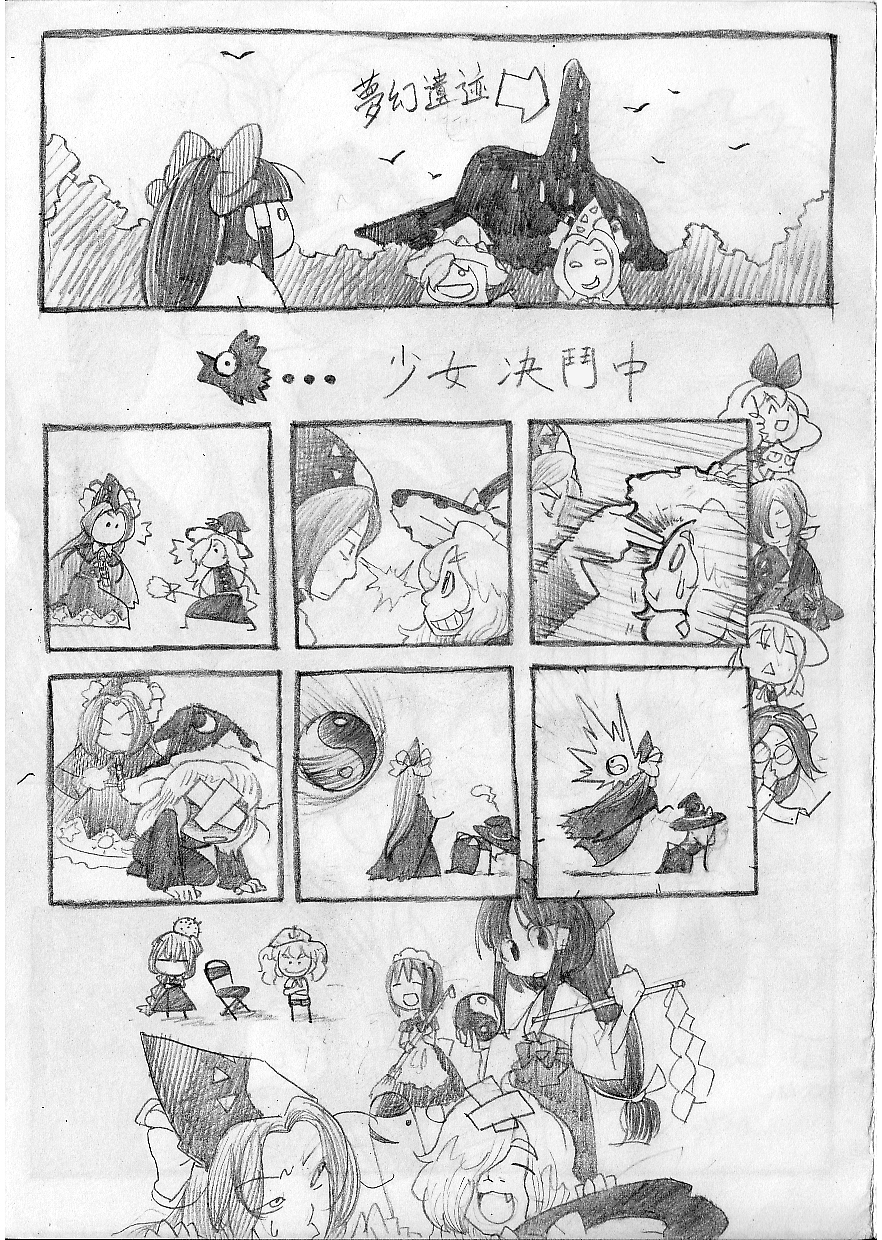 夢幻遺迹
少女決鬥中